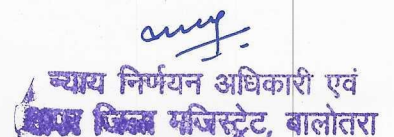 न्याय निर्णयन अधिकारी एवं
जिला मजिस्ट्रेट, बालोतरा